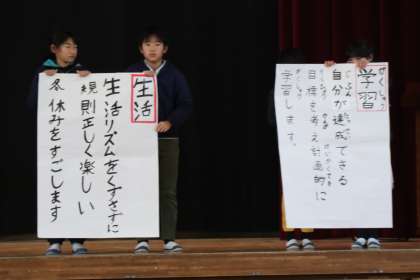 生活
生活リズムをくずさずに
規則正しく楽しい
冬休みをすごします
学習
がくしゅう
自分が達成できる
目標を考え計画的に
学習します。